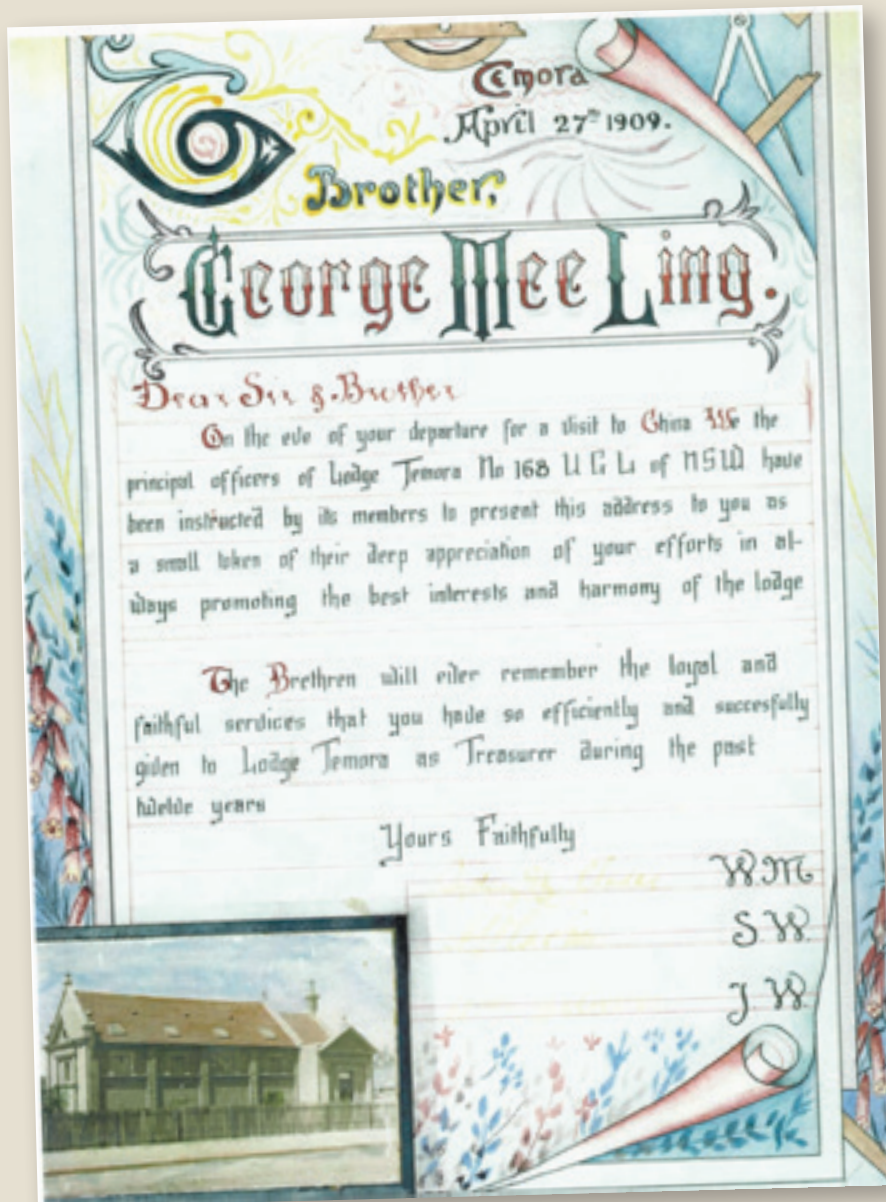 Temora
April 27th 1909.
Brother,
George Mee Ling.
Dear Sir & Brother
On the eve of your departure for a visit to China We the
principal officers of Lodge Temora No 168 U G L of NSW have
been instructed by its members to present this address to you as
a small token of their deep appreciation of your efforts in al-
ways promoting the best interests and harmony of the lodge
The Brethren will ever remember the loyal and
faithful services that you have so efficiently and succesfully
given to Lodge Temora as Treasurer during the past
twelve years
Yours Faithfully
W.M
S.W.
J W.